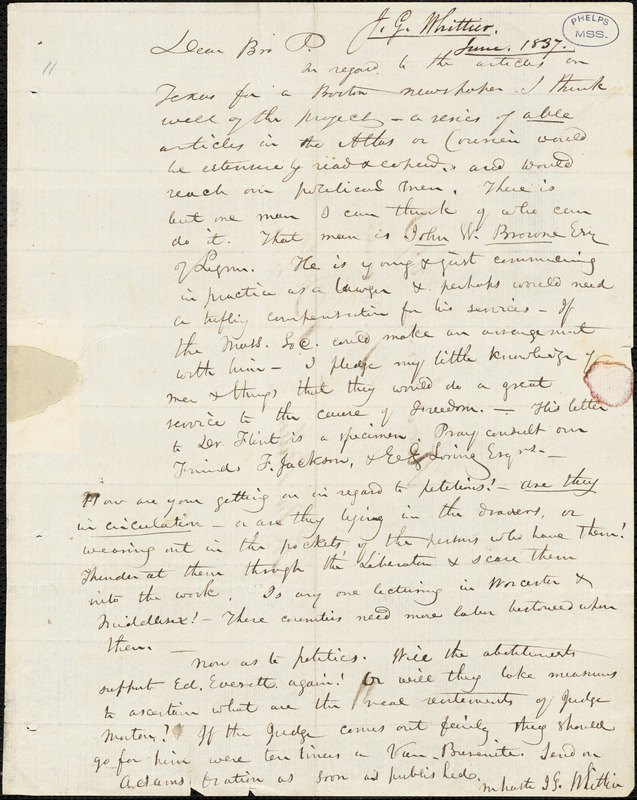 J. G. Whittier.
June. 1837.
PHELPS
MSS.
11
Dear Bro P.
In regard to the articles on
Texas for a Boston newspaper I think
well of the project – a series of able
articles in the Atlas or Courier would
be extensively read & copied, and would
reach our political men. There is
but one man I can think of who can
do it. That man is John W. Browne Esq
of Lynn. He is young & just commencing
in practice as a lawyer & perhaps would need
a trifling compensation for his services – If
the Mass. Soc. could make an arrangement
with him – I pledge my little knowledge of
men & things that they would do a great
service to the cause of Freedom. – His letter
to Dr Flint is a specimen Pray consult our
Friends F. Jackson, & E G Loring Esqrs. –
How are you getting on in regard to petitions! – are they
in circulation – or are they lying in the drawers, or
wearing out in the pockets of the persons who have them!
Thunder at them through the Liberator & scare them
into the work. Is any one lecturing in Worcester &
Middlesex! – These counties need more labor bestowed upon
them. –
Now as to politics. Will the abolitionists
support Ed. Everett again! Or will they take measures
to ascertain what are the real sentiments of Judge
Morton? If the Judge comes out fairly they should
go for him were ten times a Van-Burenite. Send on
Adams. Oration as soon as published.
In haste J G. Whittier